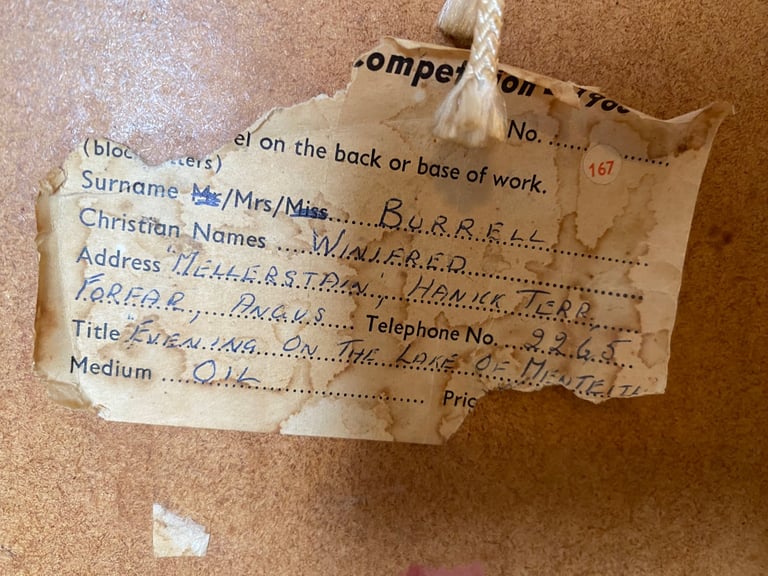 Competition - 196
No. ..........
167
el on the back or base of work.
(bloc tters)
Surname Mr/Mrs/Miss.... BURRELL
Christian Names .... WINIFRED
Address "MELLERSTAIN", HANICK TERR,
FORFAR, ANGUS ..... Telephone No. ... 2265
Title "EVENING ON THE LAKE OF MENTEITH
Medium ..... OIL .......... Pric